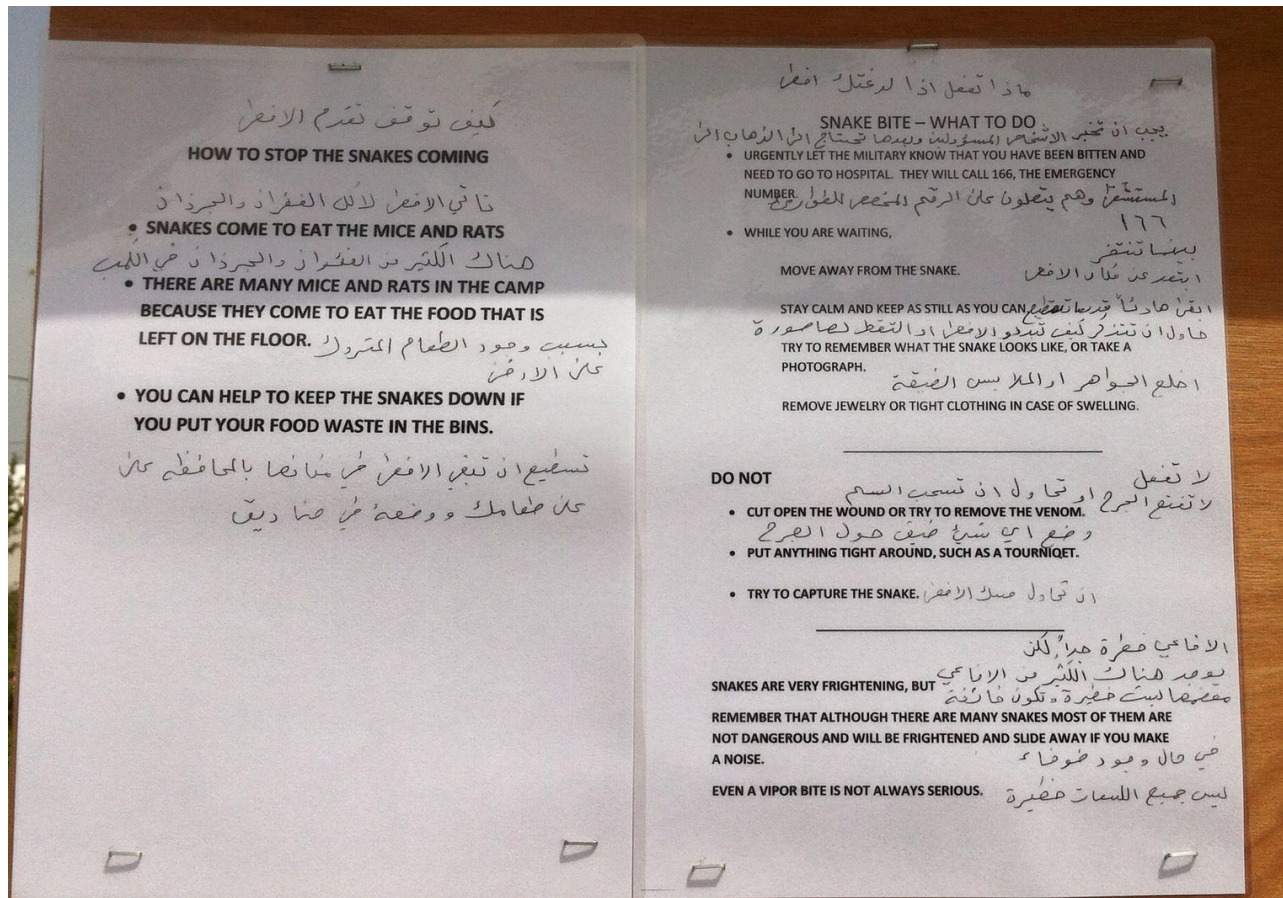 كيف توقف تقدم الافعى
HOW TO STOP THE SNAKES COMING
تاتي الافعى لأكل الفئران والجرذان
• SNAKES COME TO EAT THE MICE AND RATS
هناك الكثير من الفئران والجرذان في الكمب
• THERE ARE MANY MICE AND RATS IN THE CAMP
BECAUSE THEY COME TO EAT THE FOOD THAT IS
LEFT ON THE FLOOR. بسبب وجود الطعام المتروك
على الارض
• YOU CAN HELP TO KEEP THE SNAKES DOWN IF
YOU PUT YOUR FOOD WASTE IN THE BINS.
تسطيع ان تبقي الافعى في مكانها بالمحافظه على
على طعامك ووضعة في صناديق
ماذا تفعل اذا لدغتك افعى
SNAKE BITE – WHAT TO DO
يجب ان تخبر الاشخاص المسؤولين وبعدها تحتاج الى الذهاب الى
• URGENTLY LET THE MILITARY KNOW THAT YOU HAVE BEEN BITTEN AND
NEED TO GO TO HOSPITAL. THEY WILL CALL 166, THE EMERGENCY
NUMBER.
المستشفى وهم يتصلون على الرقم المخصص للطوارئ
١٦٦
• WHILE YOU ARE WAITING,
بينما تنتضر
MOVE AWAY FROM THE SNAKE. ابتعد عن مكان الافعى
STAY CALM AND KEEP AS STILL AS YOU CAN ابقى هادئاً قدر ما تستطيع
حاول ان تتذكر كيف تبدو الافعى او التقط لها صورة
TRY TO REMEMBER WHAT THE SNAKE LOOKS LIKE, OR TAKE A
PHOTOGRAPH.
اخلع الجواهر او الملابس الضيقة
REMOVE JEWELRY OR TIGHT CLOTHING IN CASE OF SWELLING.
DO NOT لا تفعل
لا تفتح الجرح او تحاول ان تسحب السم
• CUT OPEN THE WOUND OR TRY TO REMOVE THE VENOM.
وضع اي شيئ ضيق حول الجرح
• PUT ANYTHING TIGHT AROUND, SUCH AS A TOURNIQET.
• TRY TO CAPTURE THE SNAKE. ان تحاول مسك الافعى
الافاعي خطرة جداً لكن
يوجد هناك الكثير من الافاعي
SNAKES ARE VERY FRIGHTENING, BUT
معضمها ليست خطيرة وتكون خائفة
REMEMBER THAT ALTHOUGH THERE ARE MANY SNAKES MOST OF THEM ARE
NOT DANGEROUS AND WILL BE FRIGHTENED AND SLIDE AWAY IF YOU MAKE
A NOISE. في حال وجود ضوضاء
EVEN A VIPOR BITE IS NOT ALWAYS SERIOUS. ليس جميع اللسعات خطيرة